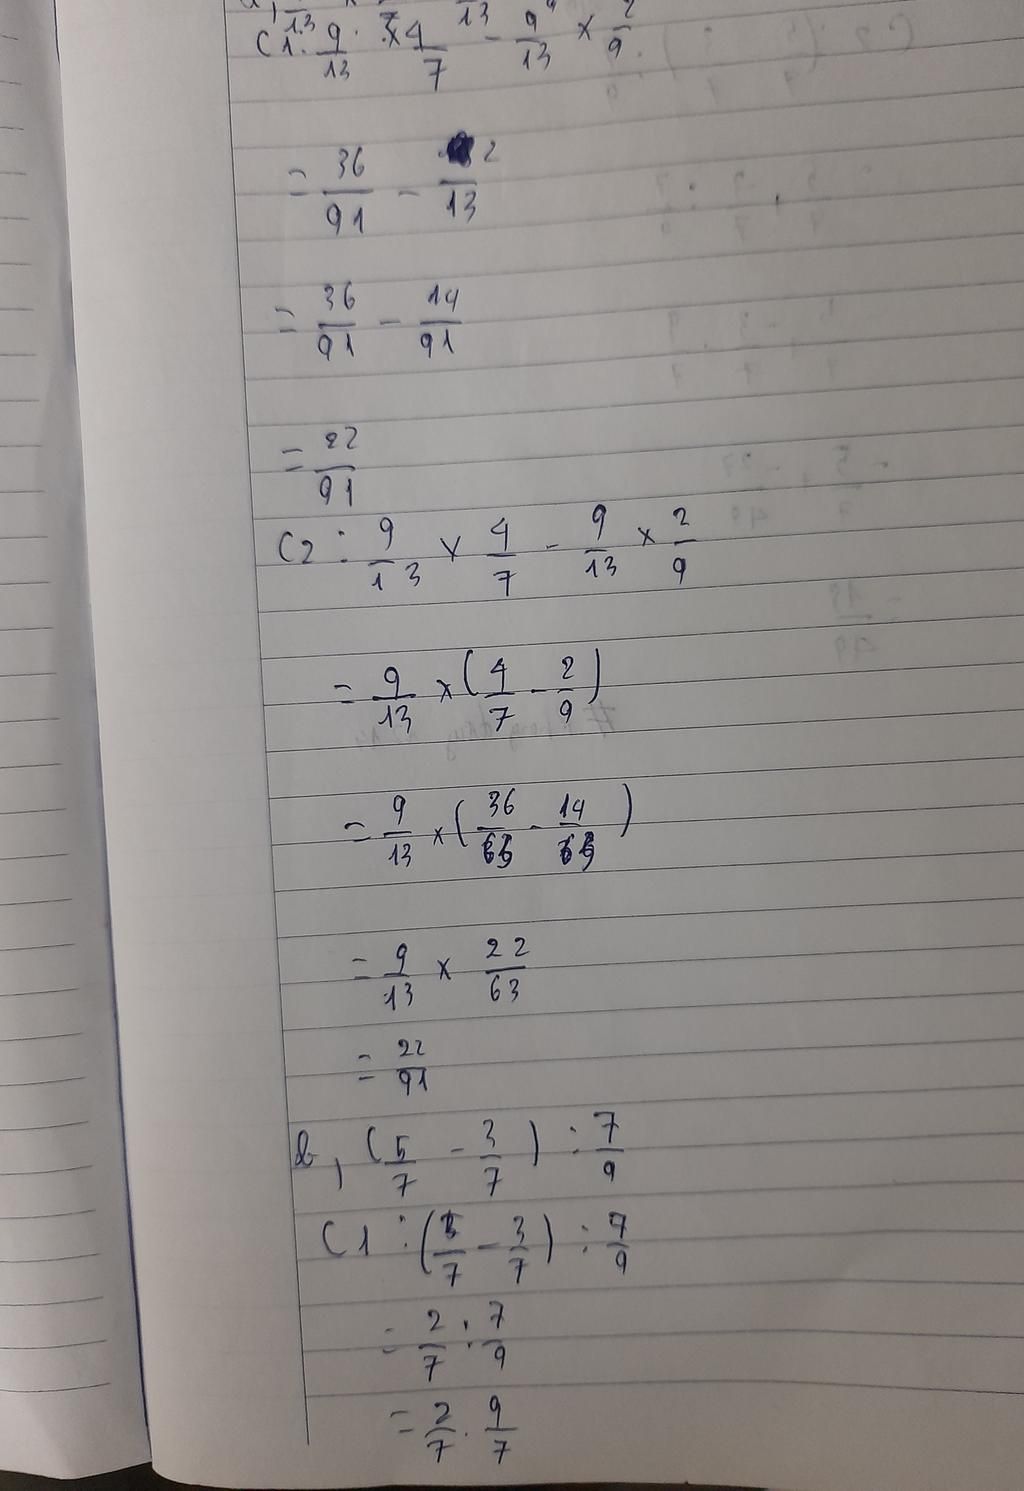 C1: 9/13 × 4/7 - 9/13 × 2/9
= 36/91 - 2/13
= 36/91 - 14/91
= 22/91
C2: 9/13 × 4/7 - 9/13 × 2/9
= 9/13 × (4/7 - 2/9)
= 9/13 × (36/63 - 14/63)
= 9/13 × 22/63
= 22/91
b, (5/7 - 3/7) : 7/9
C1: (5/7 - 3/7) : 7/9
= 2/7 : 7/9
= 2/7 . 9/7